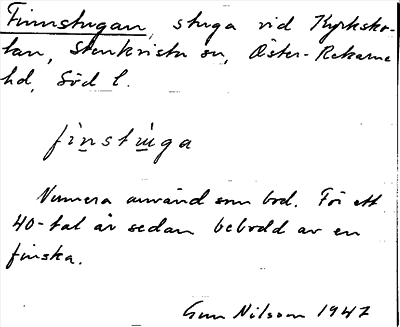 Finnstugan, stuga vid Kyrksko-
lan, Stenkvista sn, Öster-Rekarne
hd, Söd l.
finstuga
Numera använd som bod. För ett
40-tal år sedan bebodd av en
finska.
Gun Nilsson 1947